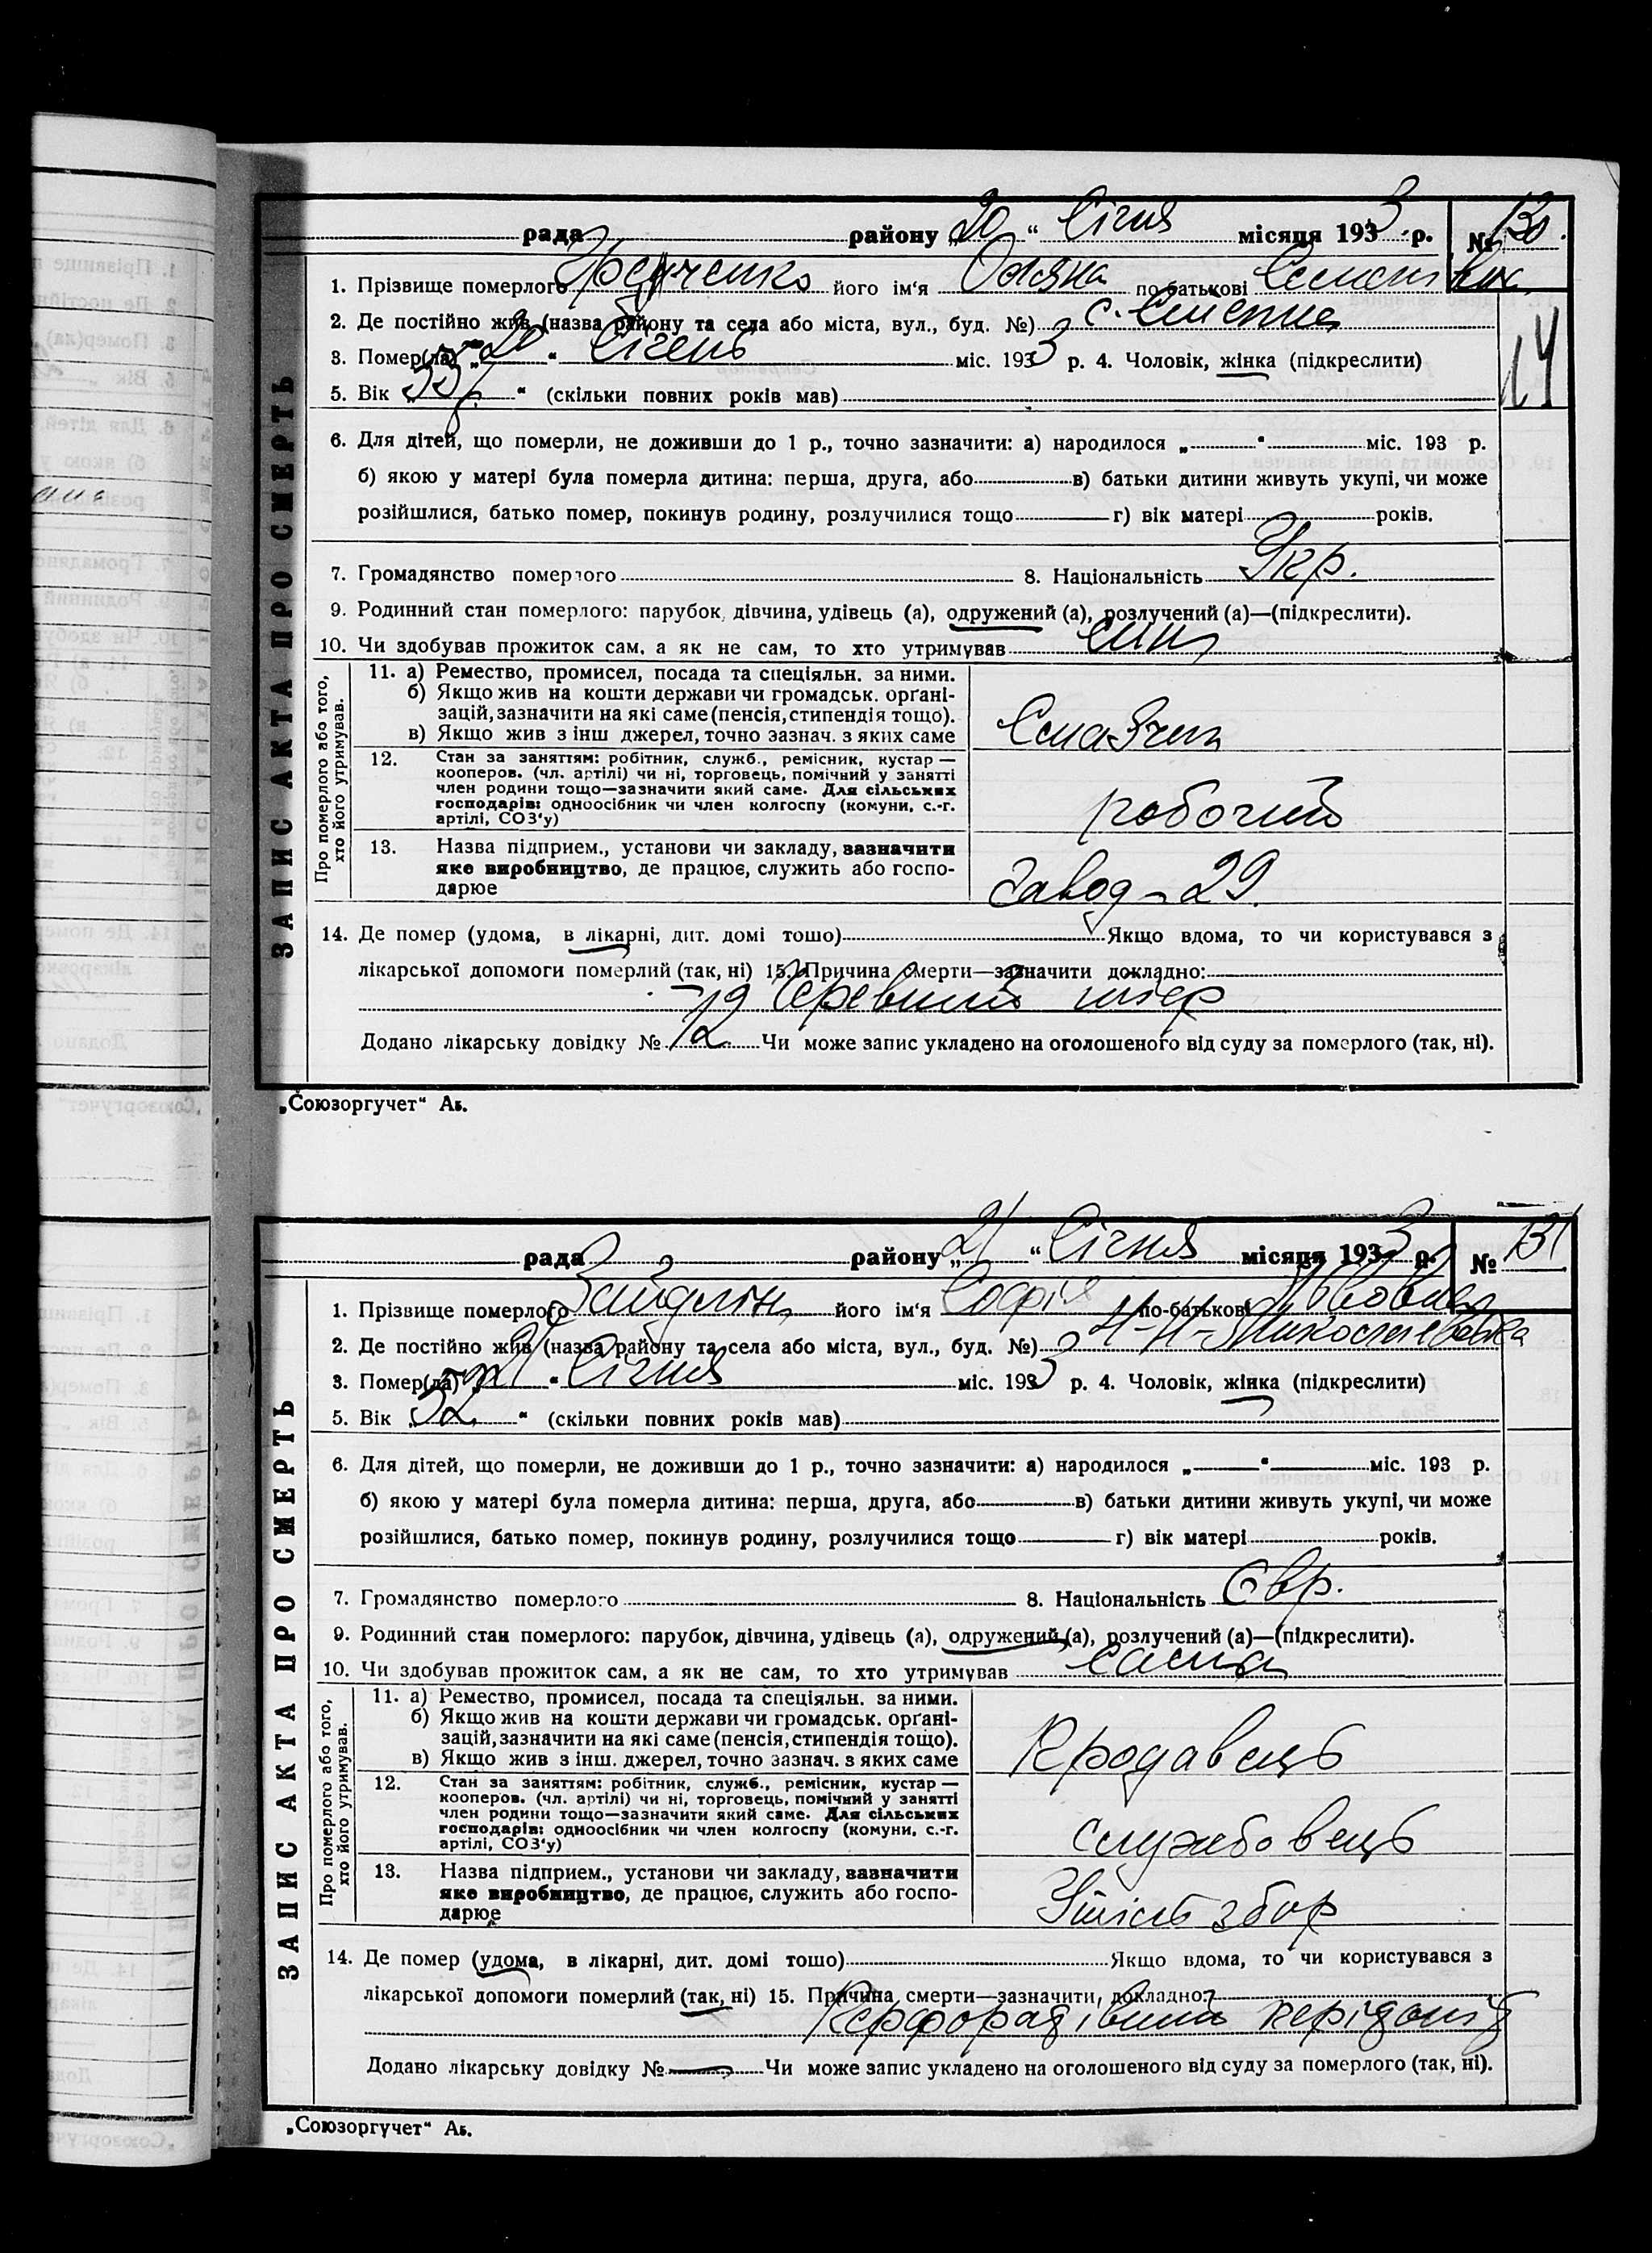 рада району „20“ Січня місяця 1933 р. № 130.
1. Прізвище померлого його ім'я Оляна по батькові
2. Де постійно жив (назва району та села або міста, вул., буд. №) с.
3. Помер(ла) „20“ Січень міс. 1933 р. 4. Чоловік, жінка (підкреслити)
14
5. Вік „55“ (скільки повних років мав)
6. Для дітей, що померли, не доживши до 1 р., точно зазначити: а) народилося „ “ міс. 193 р.
б) якою у матері була померла дитина: перша, друга, або в) батьки дитини живуть укупі, чи може
розійшлися, батько помер, покинув родину, розлучилися тощо г) вік матері років.
7. Громадянство померлого 8. Національність Укр.
9. Родинний стан померлого: парубок, дівчина, удівець (а), одружений (а), розлучений (а)—(підкреслити).
10. Чи здобував прожиток сам, а як не сам, то хто утримував син
ЗАПИС АКТА ПРО СМЕРТЬ
Про померлого або того,
хто його утримував.
11. а) Ремество, промисел, посада та спеціяльн. за ними.
б) Якщо жив на кошти держави чи громадськ. орґані-
зацій, зазначити на які саме (пенсія, стипендія тощо).
в) Якщо жив з інш джерел, точно зазнач. з яких саме
Смазчик
12. Стан за заняттям: робітник, служб., ремісник, кустар —
кооперов. (чл. артілі) чи ні, торговець, помічний у занятті
член родини тощо—зазначити який саме. Для сільських
господарів: одноосібник чи член колгоспу (комуни, с.-г.
артілі, СОЗ'у)
робочий
13. Назва підприєм., установи чи закладу, зазначити
яке виробництво, де працює, служить або госпо-
дарює
завод - 29.
14. Де помер (удома, в лікарні, дит. домі тошо) Якщо вдома, то чи користувався з
лікарської допомоги померлий (так, ні) 15. Причина смерти—зазначити докладно:
Черевний тиф
Додано лікарську довідку № 12 Чи може запис укладено на оголошеного від суду за померлого (так, ні).
„Союзоргучет“ Аб.
рада району „21“ Січня місяця 1933 р. № 131
1. Прізвище померлого Зайдлін його ім'я Софія по-батькові Львовна
2. Де постійно жив (назва району та села або міста, вул., буд. №)
3. Помер(ла) „21“ Січня міс. 1933 р. 4. Чоловік, жінка (підкреслити)
5. Вік „52“ (скільки повних років мав)
6. Для дітей, що померли, не доживши до 1 р., точно зазначити: а) народилося „ “ міс. 193 р.
б) якою у матері була померла дитина: перша, друга, або в) батьки дитини живуть укупі, чи може
розійшлися, батько помер, покинув родину, розлучилися тощо г) вік матері років.
7. Громадянство померлого 8. Національність Євр.
9. Родинний стан померлого: парубок, дівчина, удівець (а), одружений (а), розлучений (а)—(підкреслити).
10. Чи здобував прожиток сам, а як не сам, то хто утримував сама
ЗАПИС АКТА ПРО СМЕРТЬ
Про померлого або того,
хто його утримував.
11. а) Ремество, промисел, посада та спеціяльн. за ними.
б) Якщо жив на кошти держави чи громадськ. орґані-
зацій, зазначити на які саме (пенсія, стипендія тощо).
в) Якщо жив з інш. джерел, точно зазнач. з яких саме
Продавець
12. Стан за заняттям: робітник, служб., ремісник, кустар —
кооперов. (чл. артілі) чи ні, торговець, помічний у занятті
член родини тощо—зазначити який саме. Для сільських
господарів: одноосібник чи член колгоспу (комуни, с.-г.
артілі, СОЗ'у)
службовець
13. Назва підприєм., установи чи закладу, зазначити
яке виробництво, де працює, служить або госпо-
дарює
збор
14. Де помер (удома, в лікарні, дит. домі тошо) Якщо вдома, то чи користувався з
лікарської допомоги померлий (так, ні) 15. Причина смерти—зазначити докладно:
Додано лікарську довідку № Чи може запис укладено на оголошеного від суду за померлого (так, ні).
„Союзоргучет“ Аб.